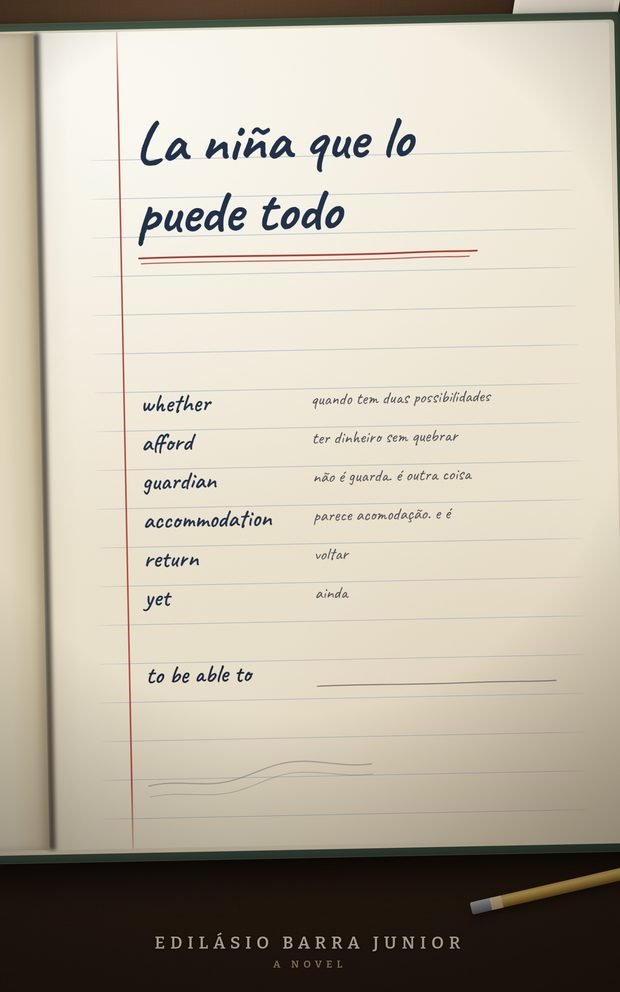 La niña que lo
puede todo
whether quando tem duas possibilidades
afford ter dinheiro sem quebrar
guardian não é guarda. é outra coisa
accommodation parece acomodação. e é
return voltar
yet ainda
to be able to
EDILÁSIO BARRA JUNIOR
A NOVEL